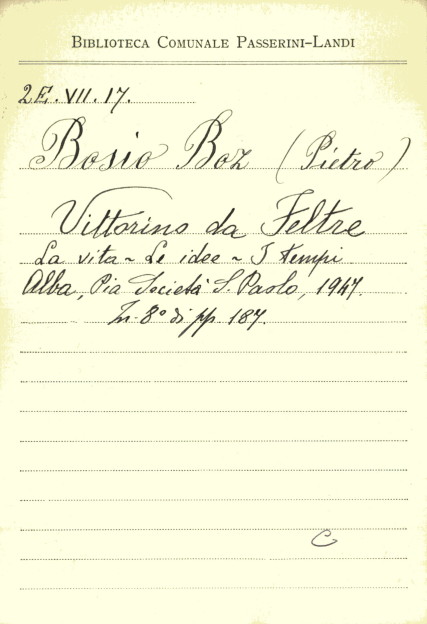 BIBLIOTECA COMUNALE PASSERINI-LANDI
2E.VII.17.
Bosio Boz (Pietro)
Vittorino da Feltre
La vita ~ Le idee ~ I tempi
Alba, Pia Società S. Paolo, 1947.
In-8° di pp. 187.
C